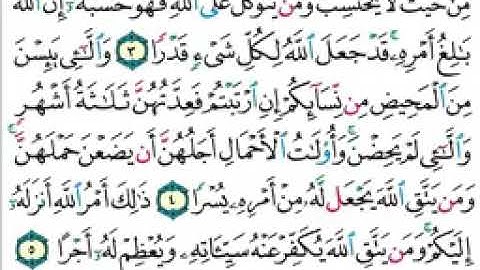 مِنْ حَيْثُ لَا يَحْتَسِبُ وَمَن يَتَوَكَّلْ عَلَى اللَّهِ فَهُوَ حَسْبُهُ إِنَّ اللَّهَ
بَالِغُ أَمْرِهِ قَدْ جَعَلَ اللَّهُ لِكُلِّ شَيْءٍ قَدْرًا ٣ وَالَّٰٓـِٔي يَئِسْنَ
مِنَ الْمَحِيضِ مِن نِّسَآئِكُمْ إِنِ ارْتَبْتُمْ فَعِدَّتُهُنَّ ثَلَاثَةُ أَشْهُرٍ
وَالَّٰٓـِٔي لَمْ يَحِضْنَ وَأُو۟لَاتُ الْأَحْمَالِ أَجَلُهُنَّ أَن يَضَعْنَ حَمْلَهُنَّ
وَمَن يَتَّقِ اللَّهَ يَجْعَل لَّهُ مِنْ أَمْرِهِ يُسْرًا ٤ ذَٰلِكَ أَمْرُ اللَّهِ أَنزَلَهُ
إِلَيْكُمْ وَمَن يَتَّقِ اللَّهَ يُكَفِّرْ عَنْهُ سَيِّئَاتِهِ وَيُعْظِمْ لَهُ أَجْرًا ٥